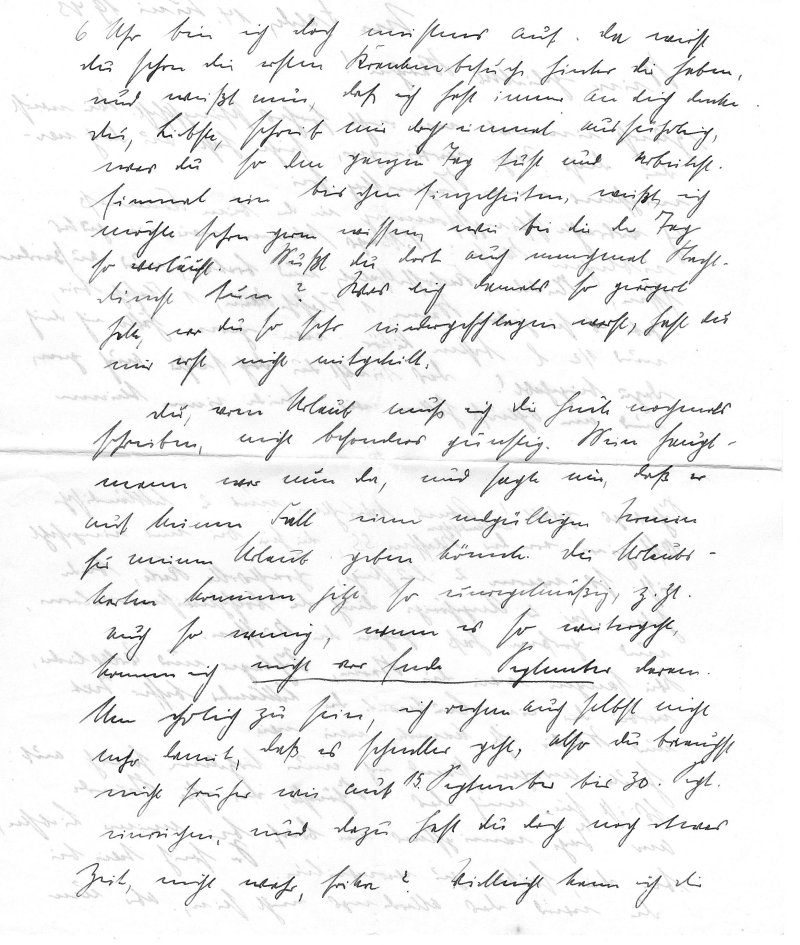 6 Uhr bin ich doch meistens auf. Da wirst
du schon die ersten Krankenbesuche hinter dir haben,
und weißt nun, daß ich fast immer an dich denke.
Du, Liebste, schreib mir doch einmal ausführlich,
was du so den ganzen Tag tust und arbeitest.
Einmal ein bischen Einzelheiten, weißt, ich
möchte schon gern wissen, wie bei dir der Tag
so verläuft. Mußt du dort auch manchmal Nacht-
dienst tun? Was dich damals so geärgert
hat, wo du so sehr niedergeschlagen warst, hast du
mir erst nicht mitgeteilt.
Du, vom Urlaub muß ich dir heute nochmals
schreiben, nicht besonders günstig. Mein Haupt-
mann war nun da, und sagte mir, daß er
auf keinen Fall einen endgültigen Termin
für meinen Urlaub geben könnte. Die Urlaubs-
karten kommen jetzt so unregelmäßig, z. Zt.
auch so wenig, wenn es so weitergeht,
komme ich nicht vor Ende September daran.
Um ehrlich zu sein, ich rechne auch selbst nicht
mehr damit, daß es schneller geht, also du brauchst
nicht früher wie auf 15. September bis 30. Sept.
einreichen, und dazu hast du doch noch etwas
Zeit, nicht wahr, Erika? Vielleicht kann ich dir